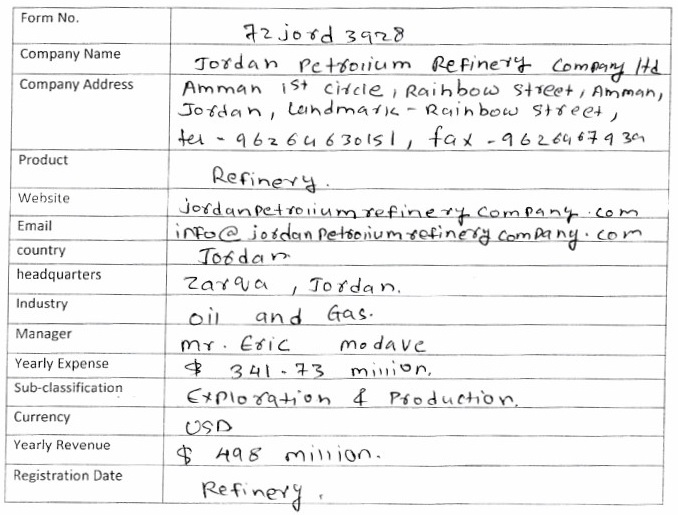 Form No. 72jord3928
Company Name Jordan Petrolium Refinery Company ltd
Company Address Amman 1st circle, Rainbow street, Amman,
Jordan, Landmark - Rainbow street,
tel - 96264630151, fax -
Product Refinery.
Website jordanpetroliumrefinerycompany.com
Email info@jordanpetroliumrefinerycompany.com
country Jordan
headquarters Zarqa, Jordan.
Industry oil and Gas.
Manager Mr. Eric modave
Yearly Expense $ 341.73 million.
Sub-classification Exploration & Production.
Currency USD
Yearly Revenue $ 498 million.
Registration Date Refinery.